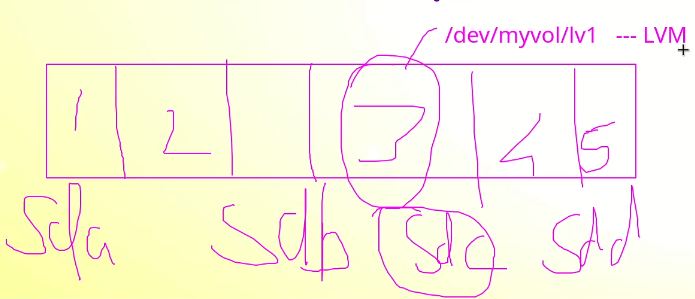 /dev/myvol/lv1 --- LVM
1 2 3 4 5
Sda Sdb Sdc Sdd